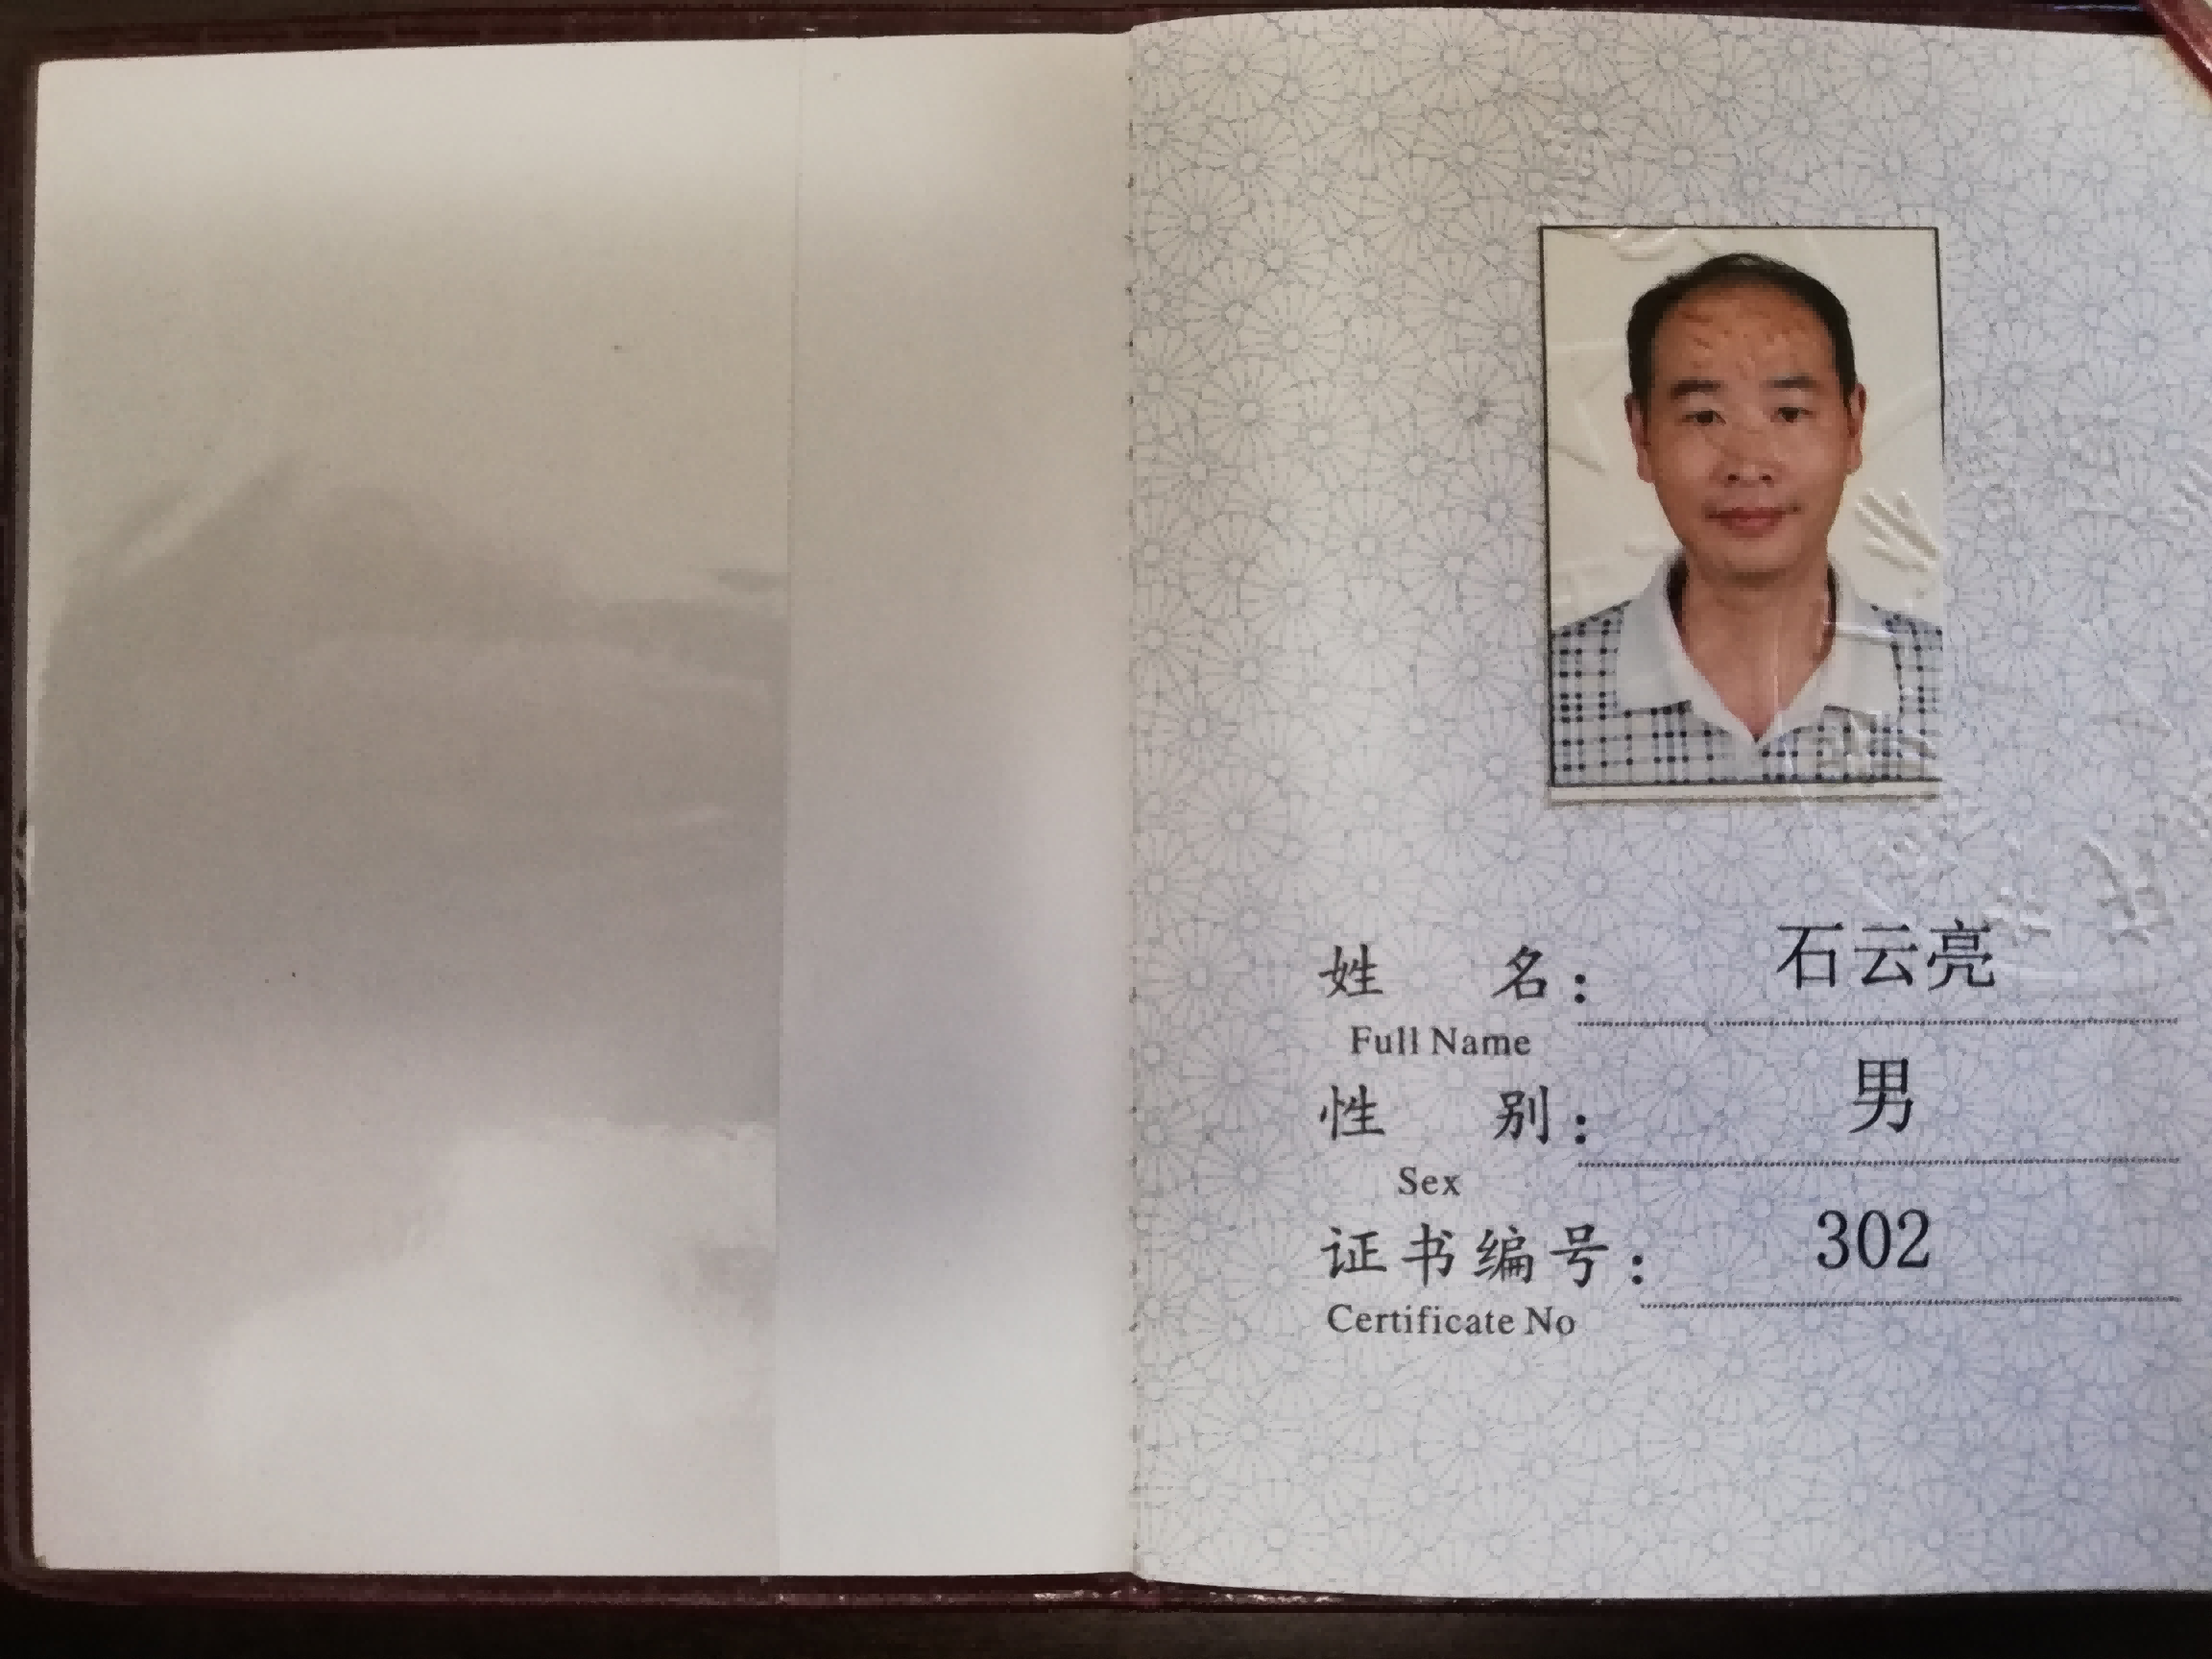 姓 名： 石云亮
Full Name
性 别： 男
Sex
证书编号： 302
Certificate No